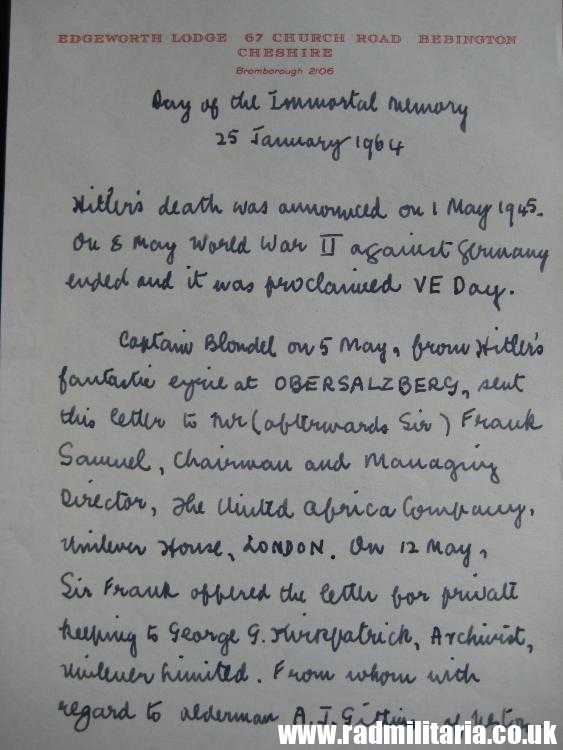 EDGEWORTH LODGE 67 CHURCH ROAD BEBINGTON
CHESHIRE
Bromborough 2106
Day of the Immortal Memory
25 January 1964
Hitler's death was announced on 1 May 1945.
On 8 May World War II against Germany
ended and it was proclaimed VE Day.
Captain Blondel on 5 May, from Hitler's
fantastic eyrie at OBERSALZBERG, sent
this letter to Mr (afterwards Sir) Frank
Samuel, Chairman and Managing
Director, The United Africa Company,
Unilever House, LONDON. On 12 May,
Sir Frank offered the letter for private
keeping to George G. Kirkpatrick, Archivist,
Unilever Limited. From whom with
regard to alderman A.J.
www.radmilitaria.co.uk